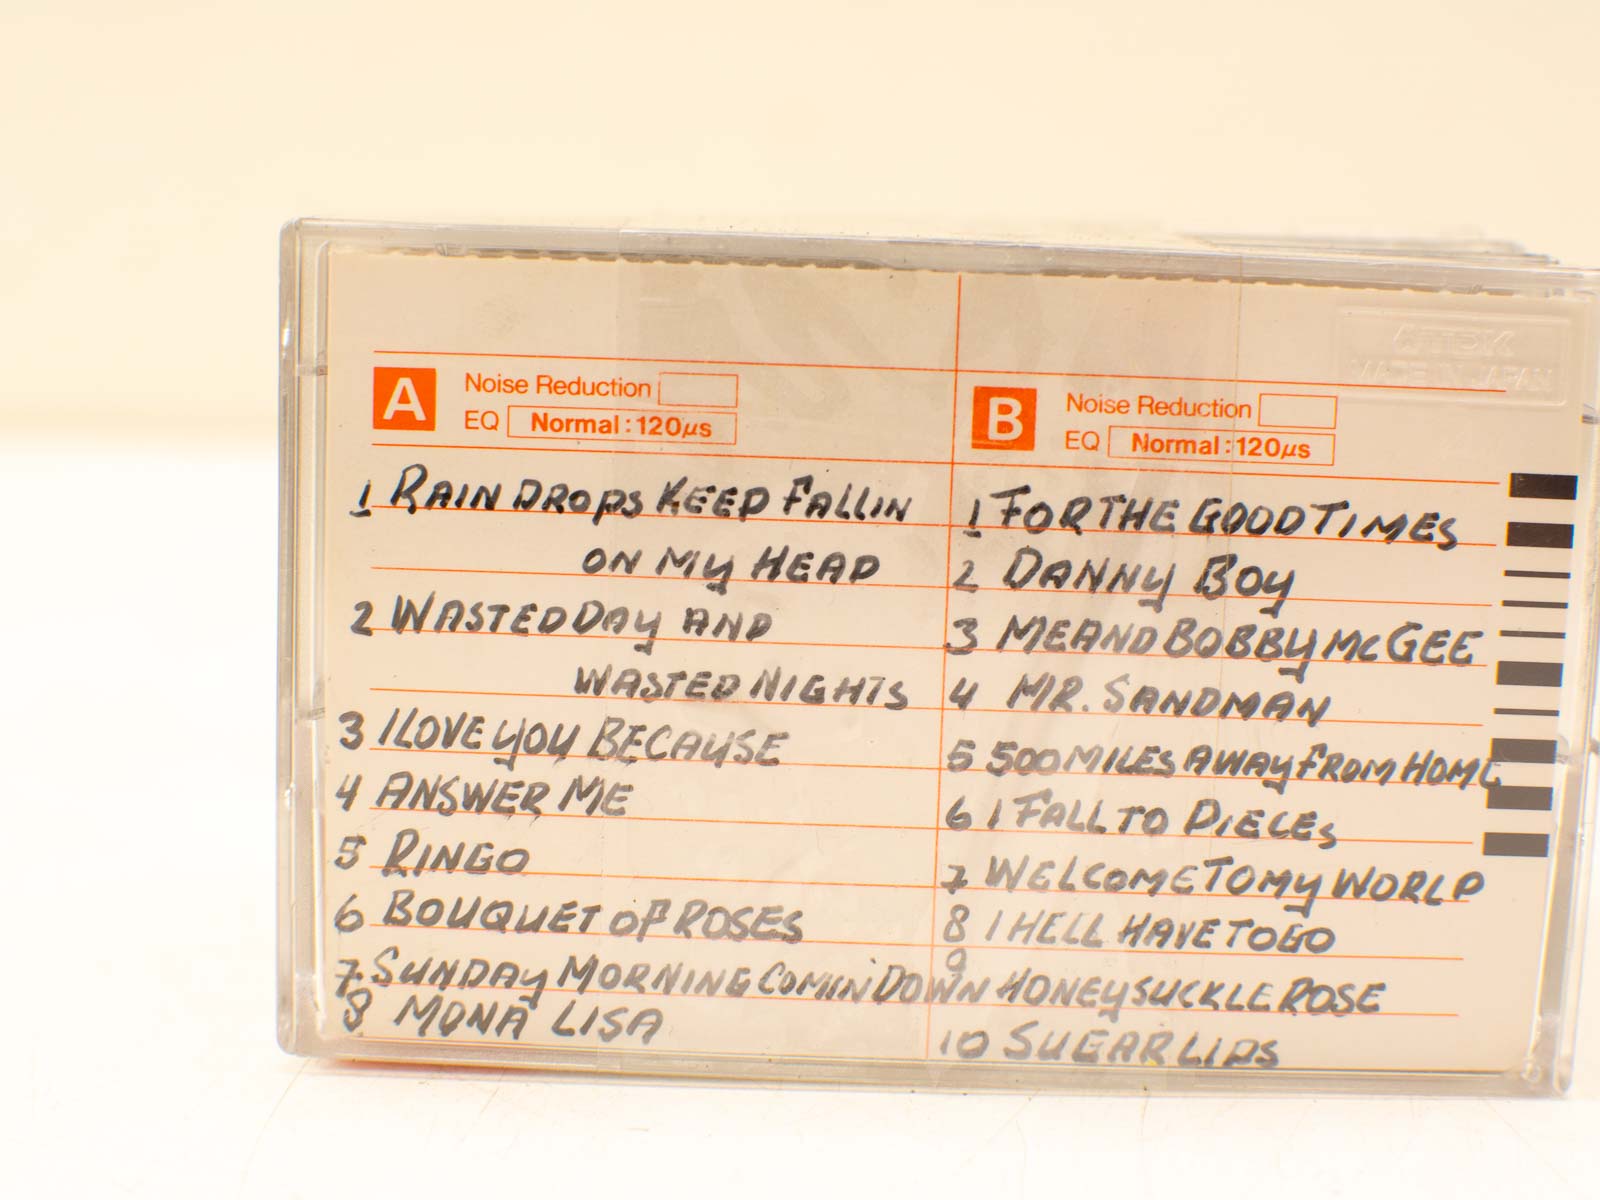 TDK
MADE IN JAPAN
A
Noise Reduction
EQ Normal:120µs
1 RAINDROPS KEEP FALLIN
ON MY HEAD
2 WASTED DAY AND
WASTED NIGHTS
3 I LOVE YOU BECAUSE
4 ANSWER ME
5 RINGO
6 BOUQUET OF ROSES
7 SUNDAY MORNING COMIN DOWN
8 MONA LISA
B
Noise Reduction
EQ Normal:120µs
1 FOR THE GOOD TIMES
2 DANNY BOY
3 ME AND BOBBY MCGEE
4 MR. SANDMAN
5 500 MILES AWAY FROM HOME
6 I FALL TO PIECES
7 WELCOME TO MY WORLD
8 I HELL HAVE TO GO
9 HONEYSUCKLE ROSE
10 SUGAR LIPS